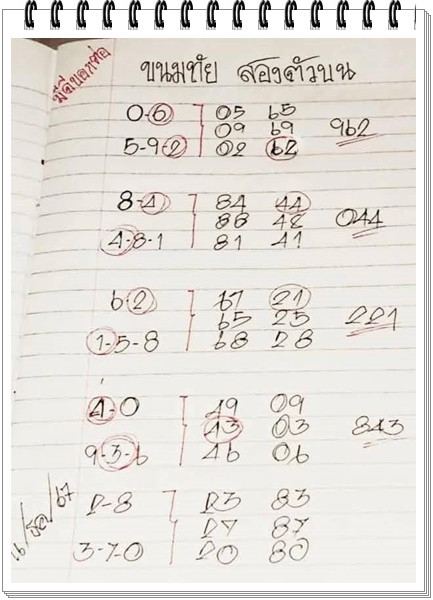 มีดีบอกต่อ
ขนมทัย สองตัวบน
0-6 05 65
09 69 962
5-9-2 02 62
8-4 84 44
88 48 044
4-8-1 81 41
6-2 67 21
65 25 221
1-5-8 68 28
4-0 49 09
43 03 843
9-3-6 46 06
2-8 23 83
27 87
3-7-0 20 80
16/ /67